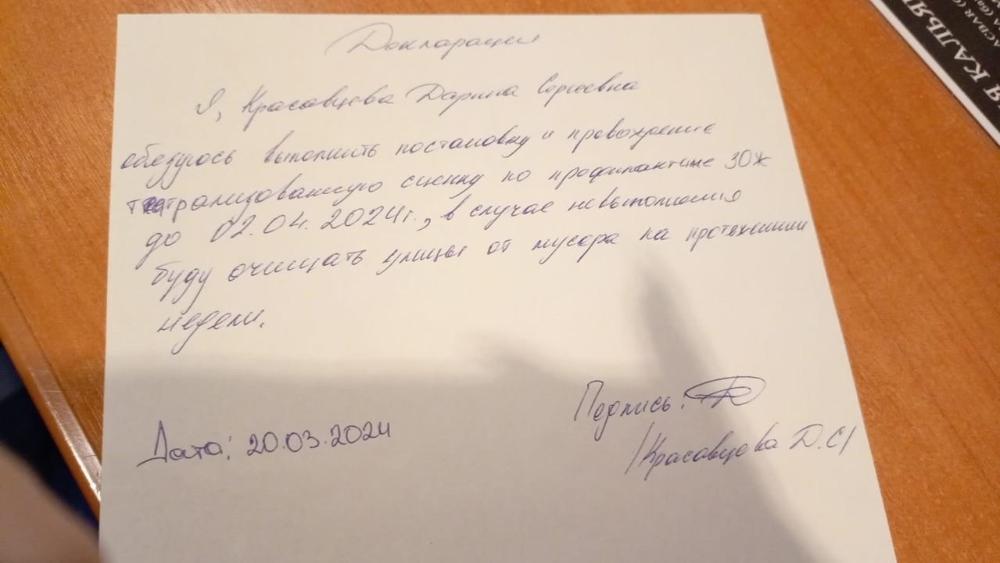 Докларация
Я, Красавцева Дарина Сергеевна
обязуюсь выполнить постановку и провождение
театрализованную сценку по профилактике ЗОЖ
до 02.04.2024г., в случае невыполнения
буду очищать улицы от мусора на протяжении
недели.
Подпись:
Дата: 20.03.2024
/Красавцева Д.С/
Я КАЛЬЯ